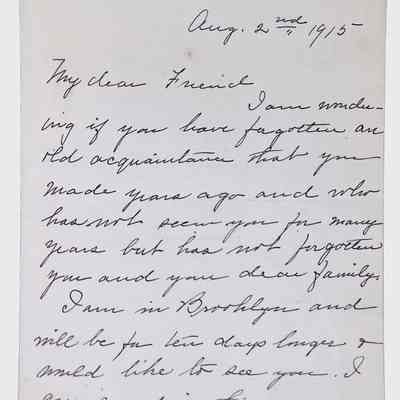 Aug. 2nd 1915
My dear Friend
I am wonder-
ing if you have forgotten an
old acquaintance that you
made years ago and who
has not seen you for many
years but has not forgotten
you and your dear family.
I am in Brooklyn and
will be for ten days longer &
would like to see you. I